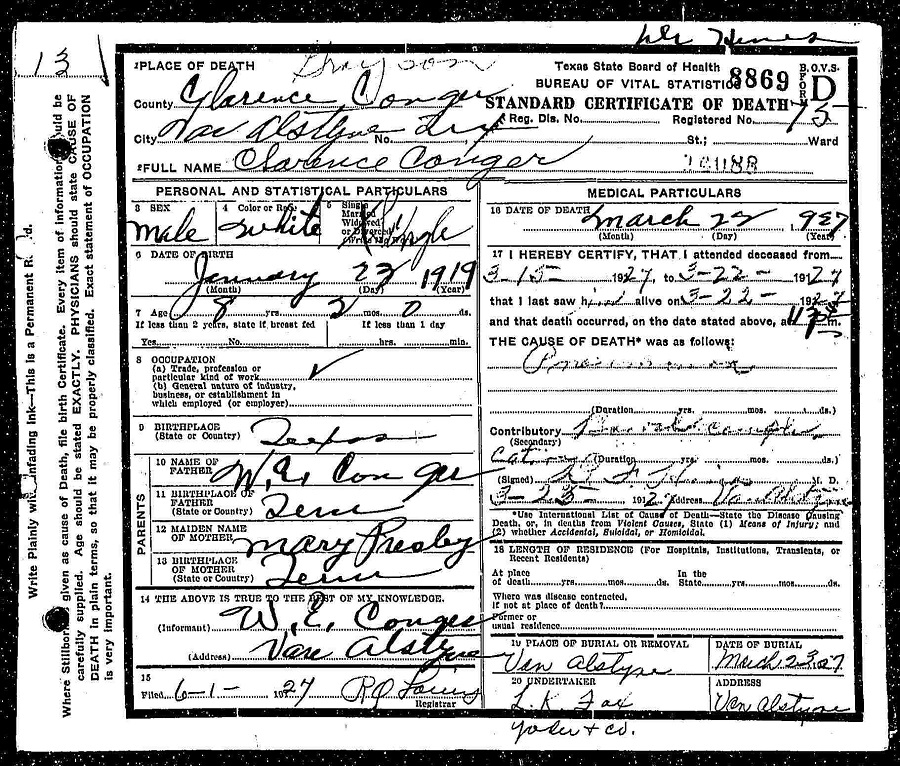 13
Dr Hines
1PLACE OF DEATH Grayson
Texas State Board of Health
BUREAU OF VITAL STATISTICS
STANDARD CERTIFICATE OF DEATH
8869
B.O.V.S.
FORM D
75
County Clarence Conger
Reg. Dis. No. Registered No.
City Van Alstyne Tex No. St.; Ward
2FULL NAME Clarence Conger
PERSONAL AND STATISTICAL PARTICULARS
3 SEX 4 Color or Race 5 Single
Married
Widowed
or Divorced
male White Single
6 DATE OF BIRTH
January 23 1919
(Month) (Day) (Year)
7 Age 8 yrs. 2 mos. 0 ds.
If less than 2 years, state if breast fed If less than 1 day
Yes No. hrs. min.
8 OCCUPATION
(a) Trade, profession or
particular kind of work
(b) General nature of industry,
business, or establishment in
which employed (or employer)
9 BIRTHPLACE
(State or Country) Texas
PARENTS
10 NAME OF
FATHER W. E. Conger
11 BIRTHPLACE OF
FATHER
(State or Country) Tenn
12 MAIDEN NAME
OF MOTHER Mary Presley
13 BIRTHPLACE
OF MOTHER
(State or Country) Tenn
14 THE ABOVE IS TRUE TO THE BEST OF MY KNOWLEDGE.
(Informant) W. E. Conger
(Address) Van Alstyne
15
Filed 6-1- 1927
Registrar
MEDICAL PARTICULARS
16 DATE OF DEATH March 22 1927
(Month) (Day) (Year)
17 I HEREBY CERTIFY, THAT I attended deceased from
3-15 1927, to 3-22- 1927
that I last saw him alive on 3-22- 1927
and that death occurred, on the date stated above, at 11 m.
THE CAUSE OF DEATH* was as follows:
Pneumonia
(Duration yrs. mos. ds.)
Contributory
(Secondary)
(Duration yrs. mos. ds.)
(Signed) M. D.
3-23- 1927 Address Van Alstyne
*Use International List of Cause of Death—State the Disease Causing
Death, or, in deaths from Violent Causes, State (1) Means of Injury; and
(2) whether Accidental, Suicidal, or Homicidal.
18 LENGTH OF RESIDENCE (For Hospitals, Institutions, Transients, or
Recent Residents)
At place In the
of death yrs. mos. ds. State yrs. mos. ds.
Where was disease contracted,
if not at place of death?
Former or
usual residence
19 PLACE OF BURIAL OR REMOVAL DATE OF BURIAL
Van Alstyne March 23 27
20 UNDERTAKER ADDRESS
L. K. Fox Van Alstyne
Yoder + Co.
Write Plainly with Unfading Ink—This is a Permanent R d.
Where Stillborn given as cause of Death, file birth Certificate. Every item of information should be
carefully supplied. Age should be stated EXACTLY. PHYSICIANS should state CAUSE OF
DEATH in plain terms, so that it may be properly classified. Exact statement of OCCUPATION
is very important.